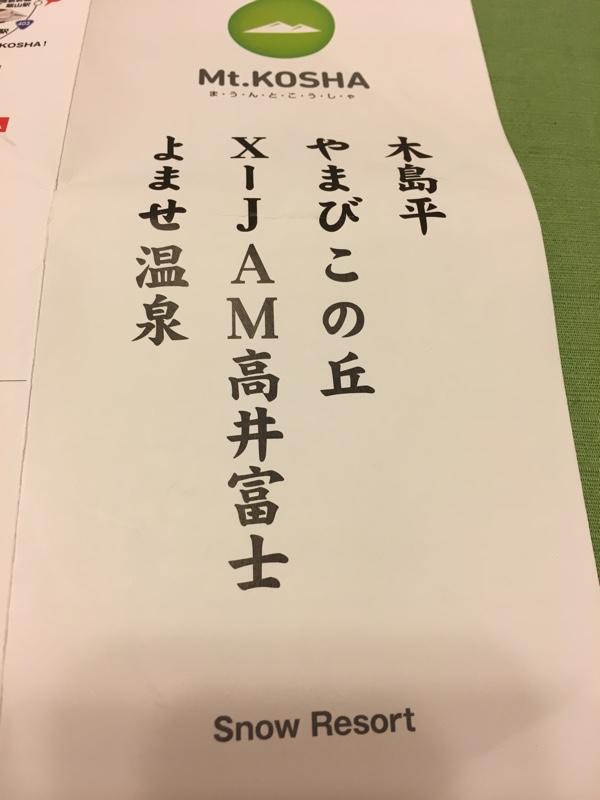 飯山駅
403
KOSHA!
Mt.KOSHA
ま・う・ん・と・こ・う・し・ゃ
木島平
やまびこの丘
X-JAM高井富士
よませ温泉
Snow Resort